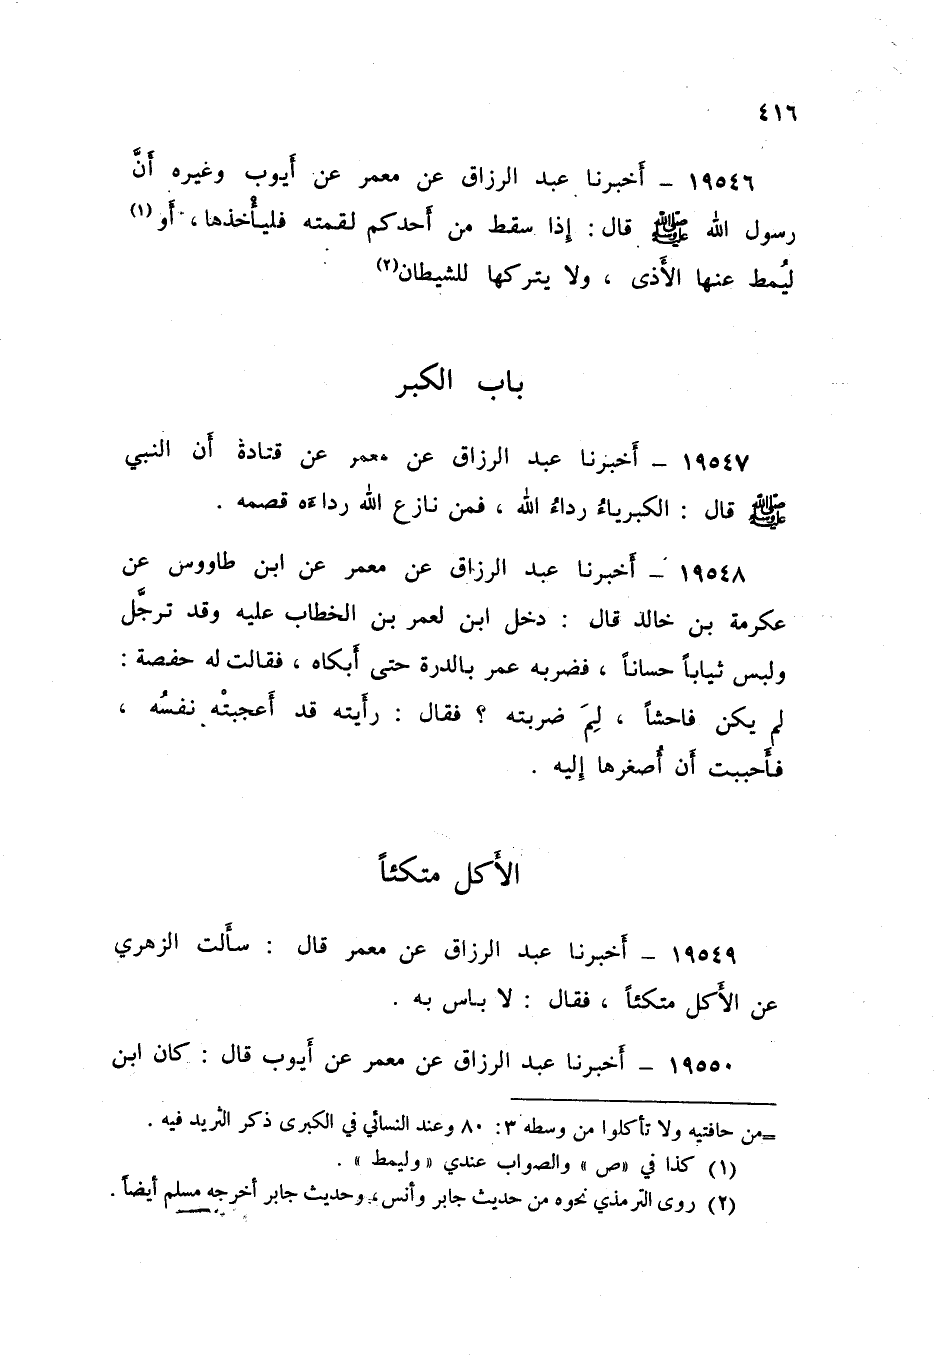 ٤١٦
١٩٥٤٦ – أخبرنا عبد الرزاق عن معمر عن أيوب وغيره أنَّ
رسول الله ﷺ قال : إذا سقط من أحدكم لقمته فليأْخذها ، أو (١)
ليُمط عنها الأَذى ، ولا يتركها للشيطان(٢)
باب الكبر
١٩٥٤٧ – أخبرنا عبد الرزاق عن معمر عن قتادة أن النبي
ﷺ قال : الكبرياءُ رداءُ الله ، فمن نازع الله رداءه قصمه .
١٩٥٤٨ – أخبرنا عبد الرزاق عن معمر عن ابن طاووس عن
عكرمة بن خالد قال : دخل ابن لعمر بن الخطاب عليه وقد ترجَّل
ولبس ثياباً حساناً ، فضربه عمر بالدرة حتى أبكاه ، فقالت له حفصة :
لم يكن فاحشاً ، لِمَ ضربته ؟ فقال : رأيته قد أعجبتْه نفسُه ،
فأَحببت أن أُصغرها إليه .
الأَكل متكئاً
١٩٥٤٩ – أخبرنا عبد الرزاق عن معمر قال : سأَلت الزهري
عن الأَكل متكئاً ، فقال : لا باس به .
١٩٥٥٠ – أخبرنا عبد الرزاق عن معمر عن أيوب قال : كان ابن
=من حافتيه ولا تأكلوا من وسطه ٣: ٨٠ وعند النسائي في الكبرى ذكر الثريد فيه .
(١) كذا في «ص» والصواب عندي «وليمط» .
(٢) روى الترمذي نحوه من حديث جابر وأنس ، وحديث جابر أخرجه مسلم أيضاً .